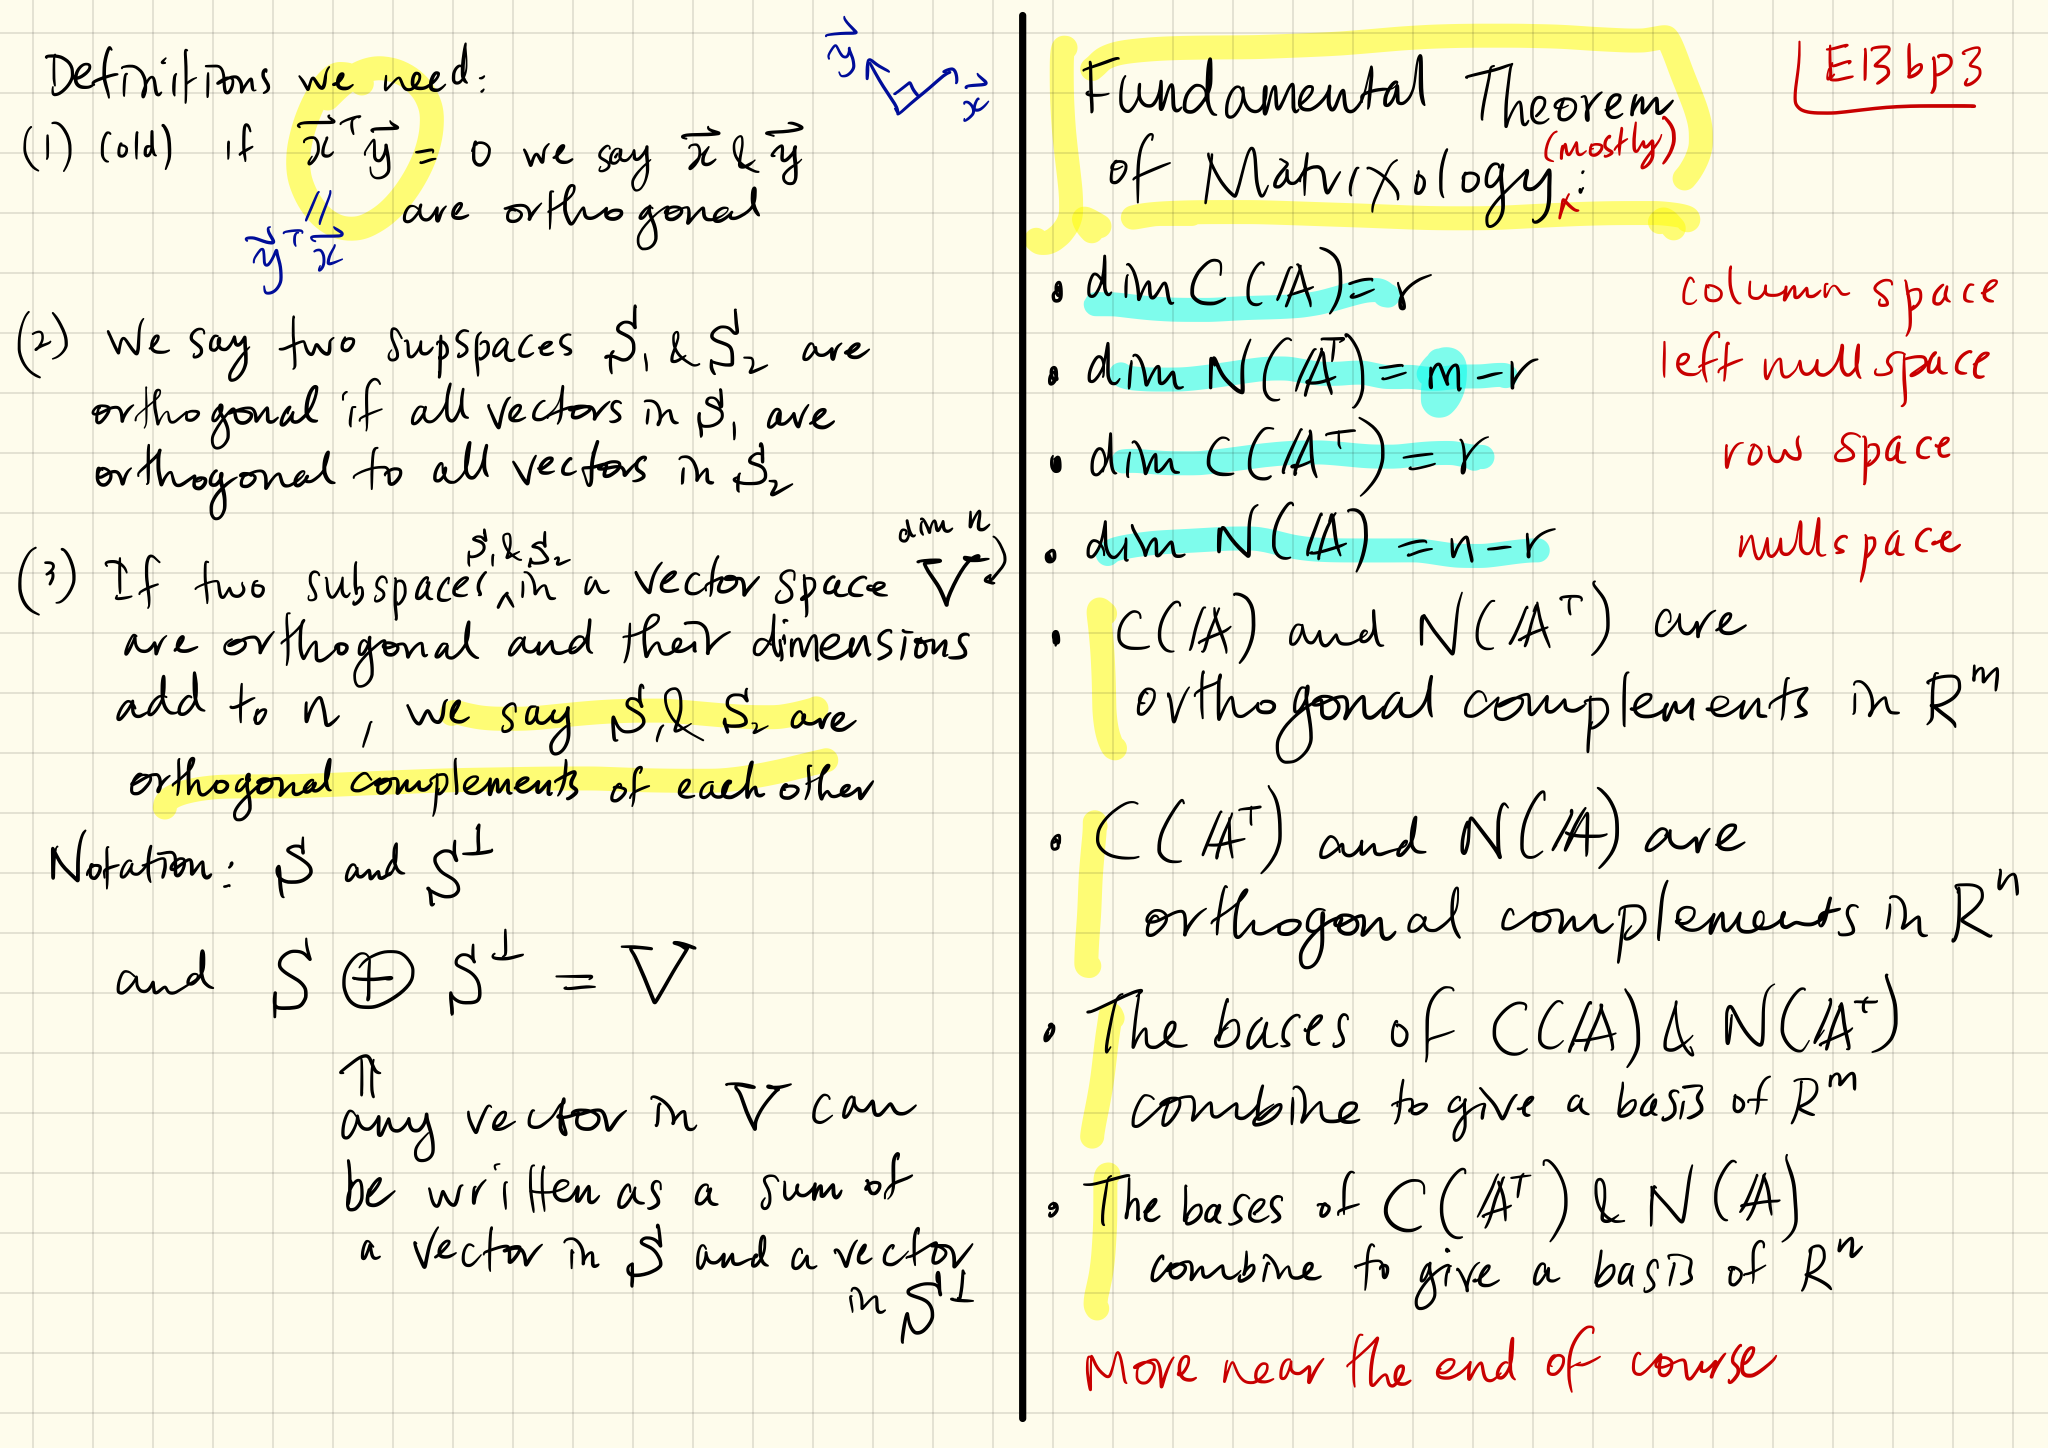 Definitions we need:
(1) (old) if x⃗ᵀy⃗ = 0 we say x⃗ & y⃗
are orthogonal
//
y⃗ᵀx⃗
y⃗
x⃗
(2) We say two supspaces S₁ & S₂ are
orthogonal if all vectors in S₁ are
orthogonal to all vectors in S₂
S₁ & S₂
dim n
(3) If two subspaces ^ in a vector space V
are orthogonal and their dimensions
add to n, we say S₁ & S₂ are
orthogonal complements of each other
Notation: S and S⊥
and S ⊕ S⊥ = V
⇑
any vector in V can
be written as a sum of
a vector in S and a vector
in S⊥
E13bp3
Fundamental Theorem
of Matrixology ^ (mostly):
• dim C(A) = r column space
• dim N(Aᵀ) = m-r left nullspace
• dim C(Aᵀ) = r row space
• dim N(A) = n-r nullspace
• C(A) and N(Aᵀ) are
orthogonal complements in Rᵐ
• C(Aᵀ) and N(A) are
orthogonal complements in Rⁿ
• The bases of C(A) & N(Aᵀ)
combine to give a basis of Rᵐ
• The bases of C(Aᵀ) & N(A)
combine to give a basis of Rⁿ
More near the end of course